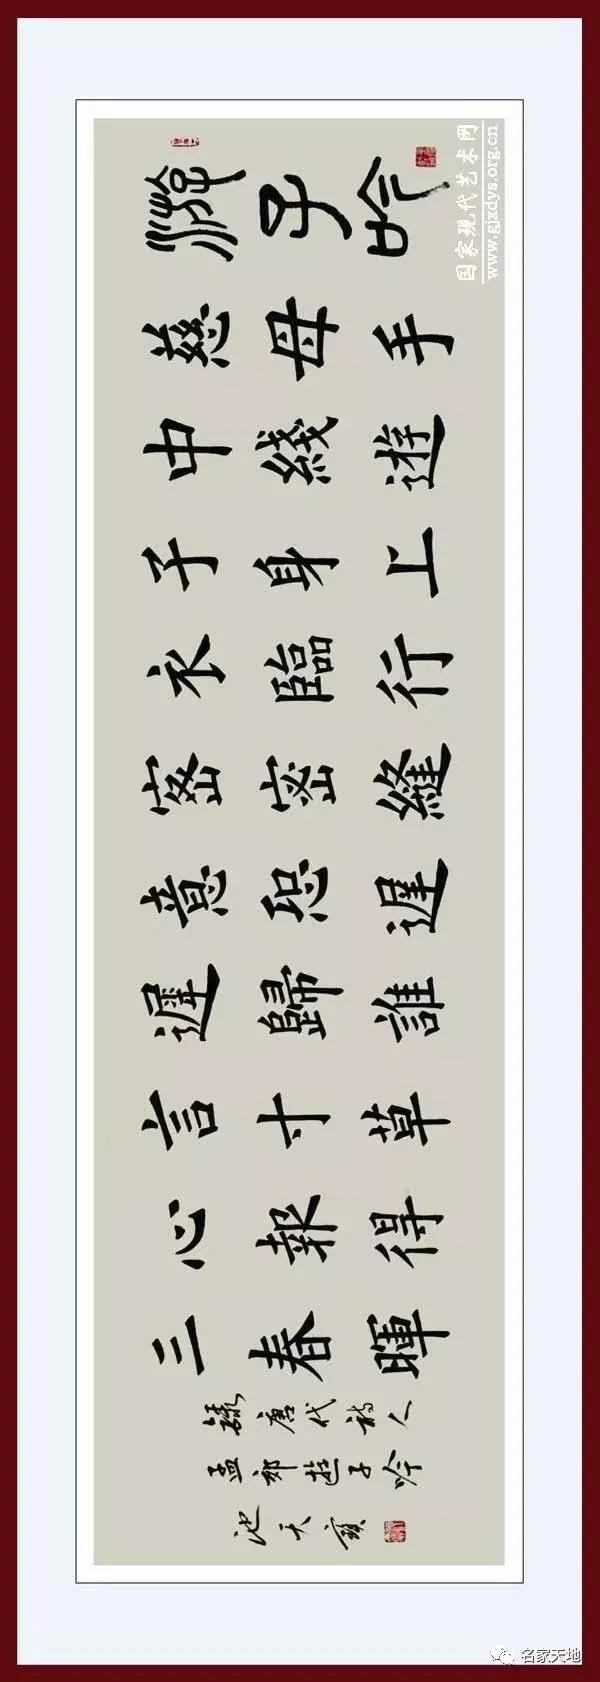 游子吟
慈母手
中綫遊
子身上
衣臨行
密密縫
意恐遲
遲歸誰
言寸草
心報得
三春暉
錄唐代詩人
孟郊遊子吟
池天寶
国家现代艺术网
www.gjxdys.org.cn
名家天地